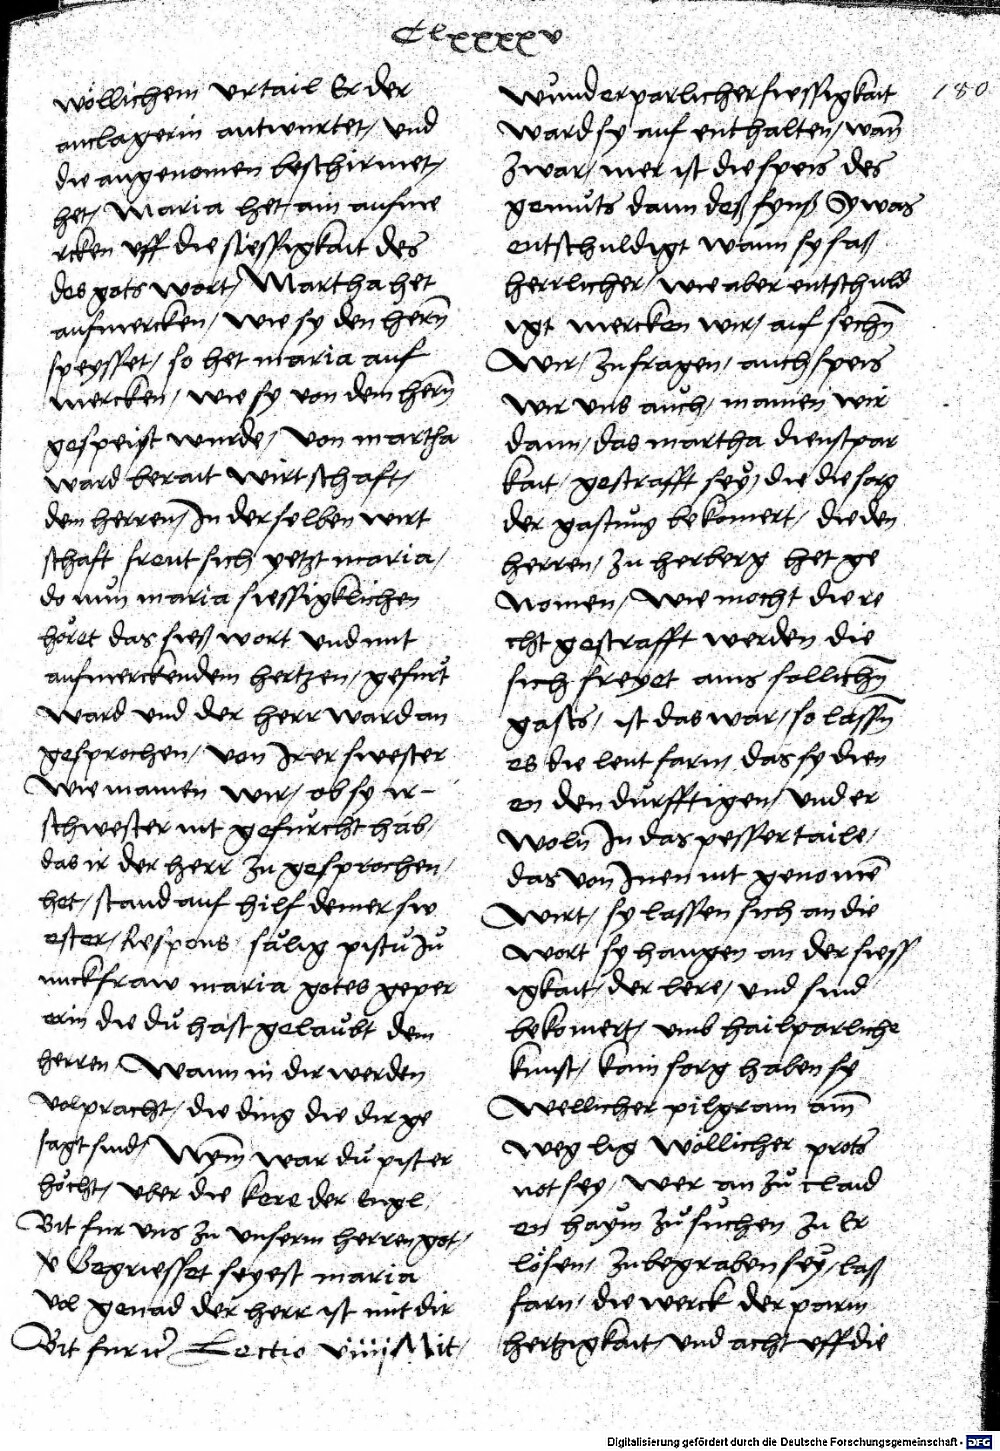 Clxxxxv
180
wöllichem urtail Er der
anclagerin antwurtet / und
die angenomen beschirmet /
het / Maria het ain aufme
rcken uff die siessigkait des
des gots wort / Martha het
aufmercken / wie sy den hern̄
speysset / so het maria auf
mercken / wie sy von dem hern̄
gespeist wurde / von martha
ward berait wirtschaft /
dem herren / In der selben wirt
schaft freut sich yetzt maria /
do nun maria siessigklichen
höret das sieß wort und mit
aufmerckendem hertzen / gefürt
ward und der herr ward an
gesprochen / von Irer swester
wie mainen wir / ob sy ir
schwester nit gefürcht hab /
das ir der herr zu gesprochen /
het / stand auf hilf deiner sw
ester / Respons sälig pistu Ju
nnckfraw maria gotes geper
erin die du hast gelaubt dem
herren Wann in dir werden
volpracht / die ding die dir ge
sagt sind / war du pist er
höcht / uber die köre der Engl
Bit fur uns zu unserm herren got /
v Gegriesset seyest maria
vol genad der herr ist mit dir
Bit fur Lectio viiij Mit /
wunderparlicher siessigkait
ward sy auf enthalten / wan̄
zwar / mer ist die speis des
gemüts dann deß synß Sy was
entschuldigt wann sy saß
herrlicher / wie aber entschuld
igt mercken wir / auf sechn̄
Wir / zu fragen / auch speis
wir uns auch / mainen wir
dann / das martha dienstpar
kait / gestrafft sey / die die sorg
der gastung bekomert / die den
herren / zu herberg het ge
nomen / Wie mocht die re
cht gestrafft werden die
sich freyet ains sollichn̄
gasts / ist das war / so lassn̄
es die leut farn / das sy dien
en den durfftigen / und er
woln̄ In das pesser taile /
das von Inen nit genomē
wirt / sy lassen sich an die
wort sy hangen an der siess
igkait / der lere / und sind
bekomert / umb hailparliche
kunst / kain sorg haben sy
Wellicher pilgram am̄
weg lig wöllicher prots
not sey / wer an zu claid
en haym zu suchen zu Er
lösen / zu begraben sey / laß
farn / die werck der parm
hertzigkait / und acht uff die
Digitalisierung gefördert durch die Deutsche Forschungsgemeinschaft - DFG